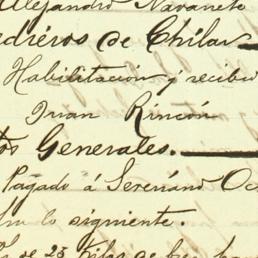 Alejandro Navarrete
edieros de Chilar
Habilitación y recibi
Juan Rincón
tos Generales.
Pagado á Sereriano Oc
lo siguiente.
de 25 Kilos de